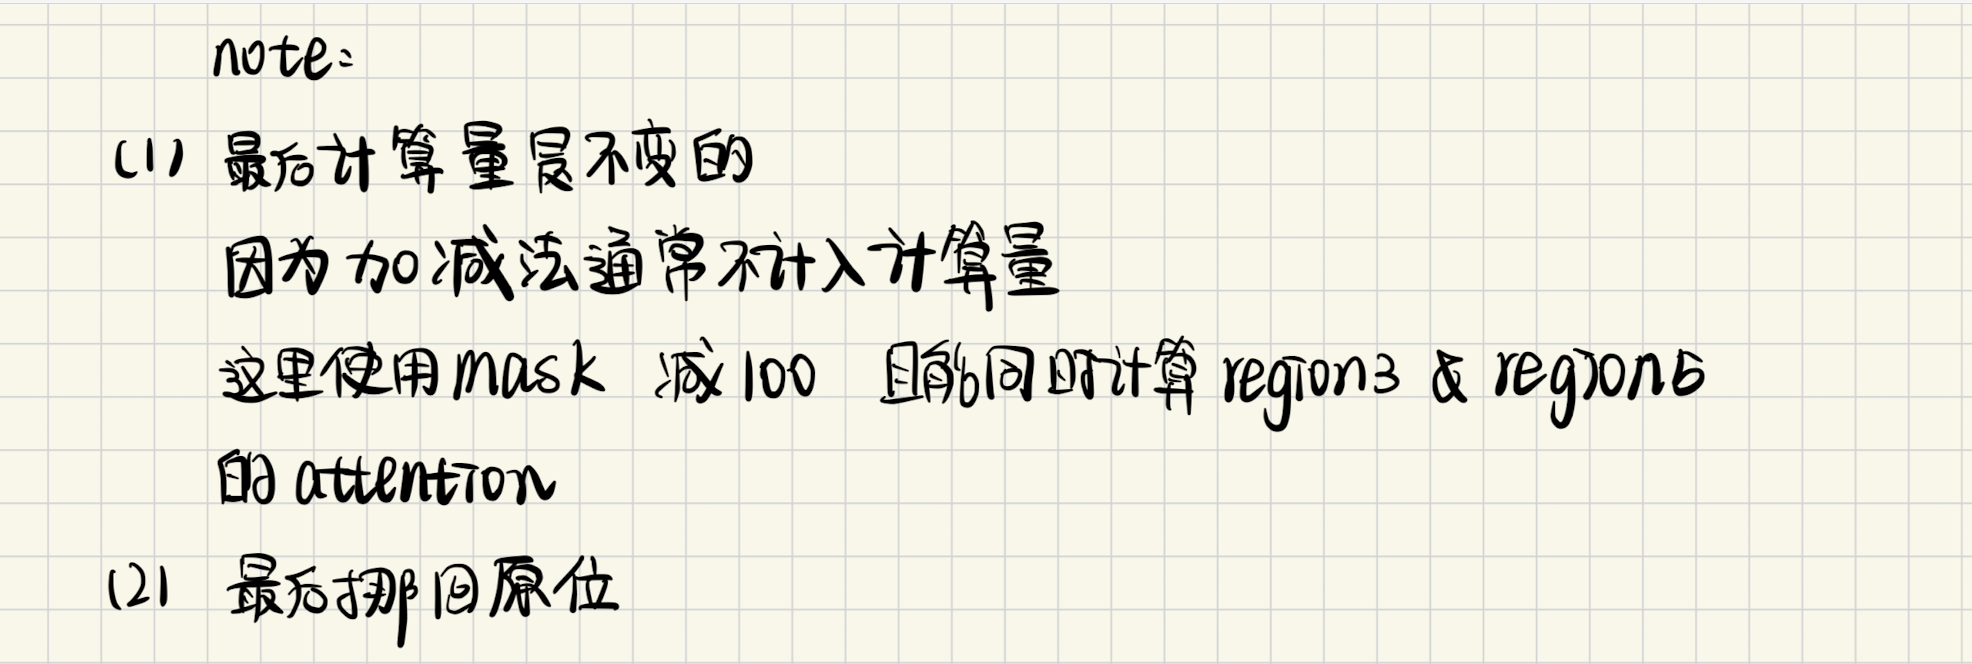 note:
(1) 最后计算量是不变的
因为加减法通常不计入计算量
这里使用mask 减100 且能同时计算 region3 & region5
的 attention
(2) 最后挪回原位